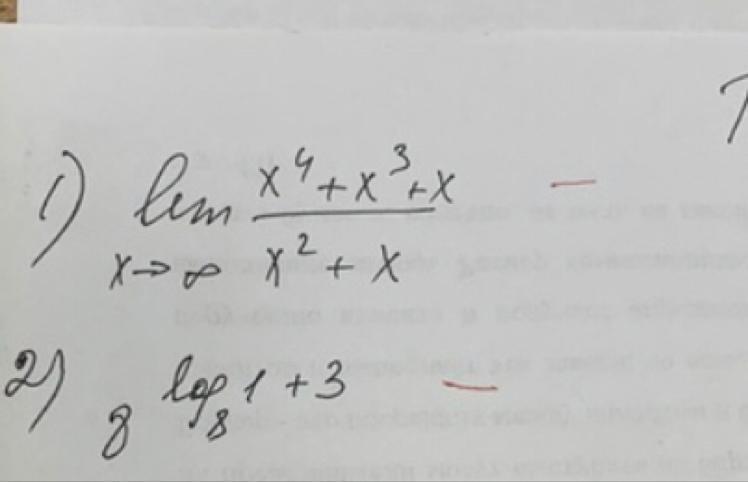 1) lim x→∞ (x⁴+x³+x)/(x²+x) —
2) 8^(log₈1+3) —